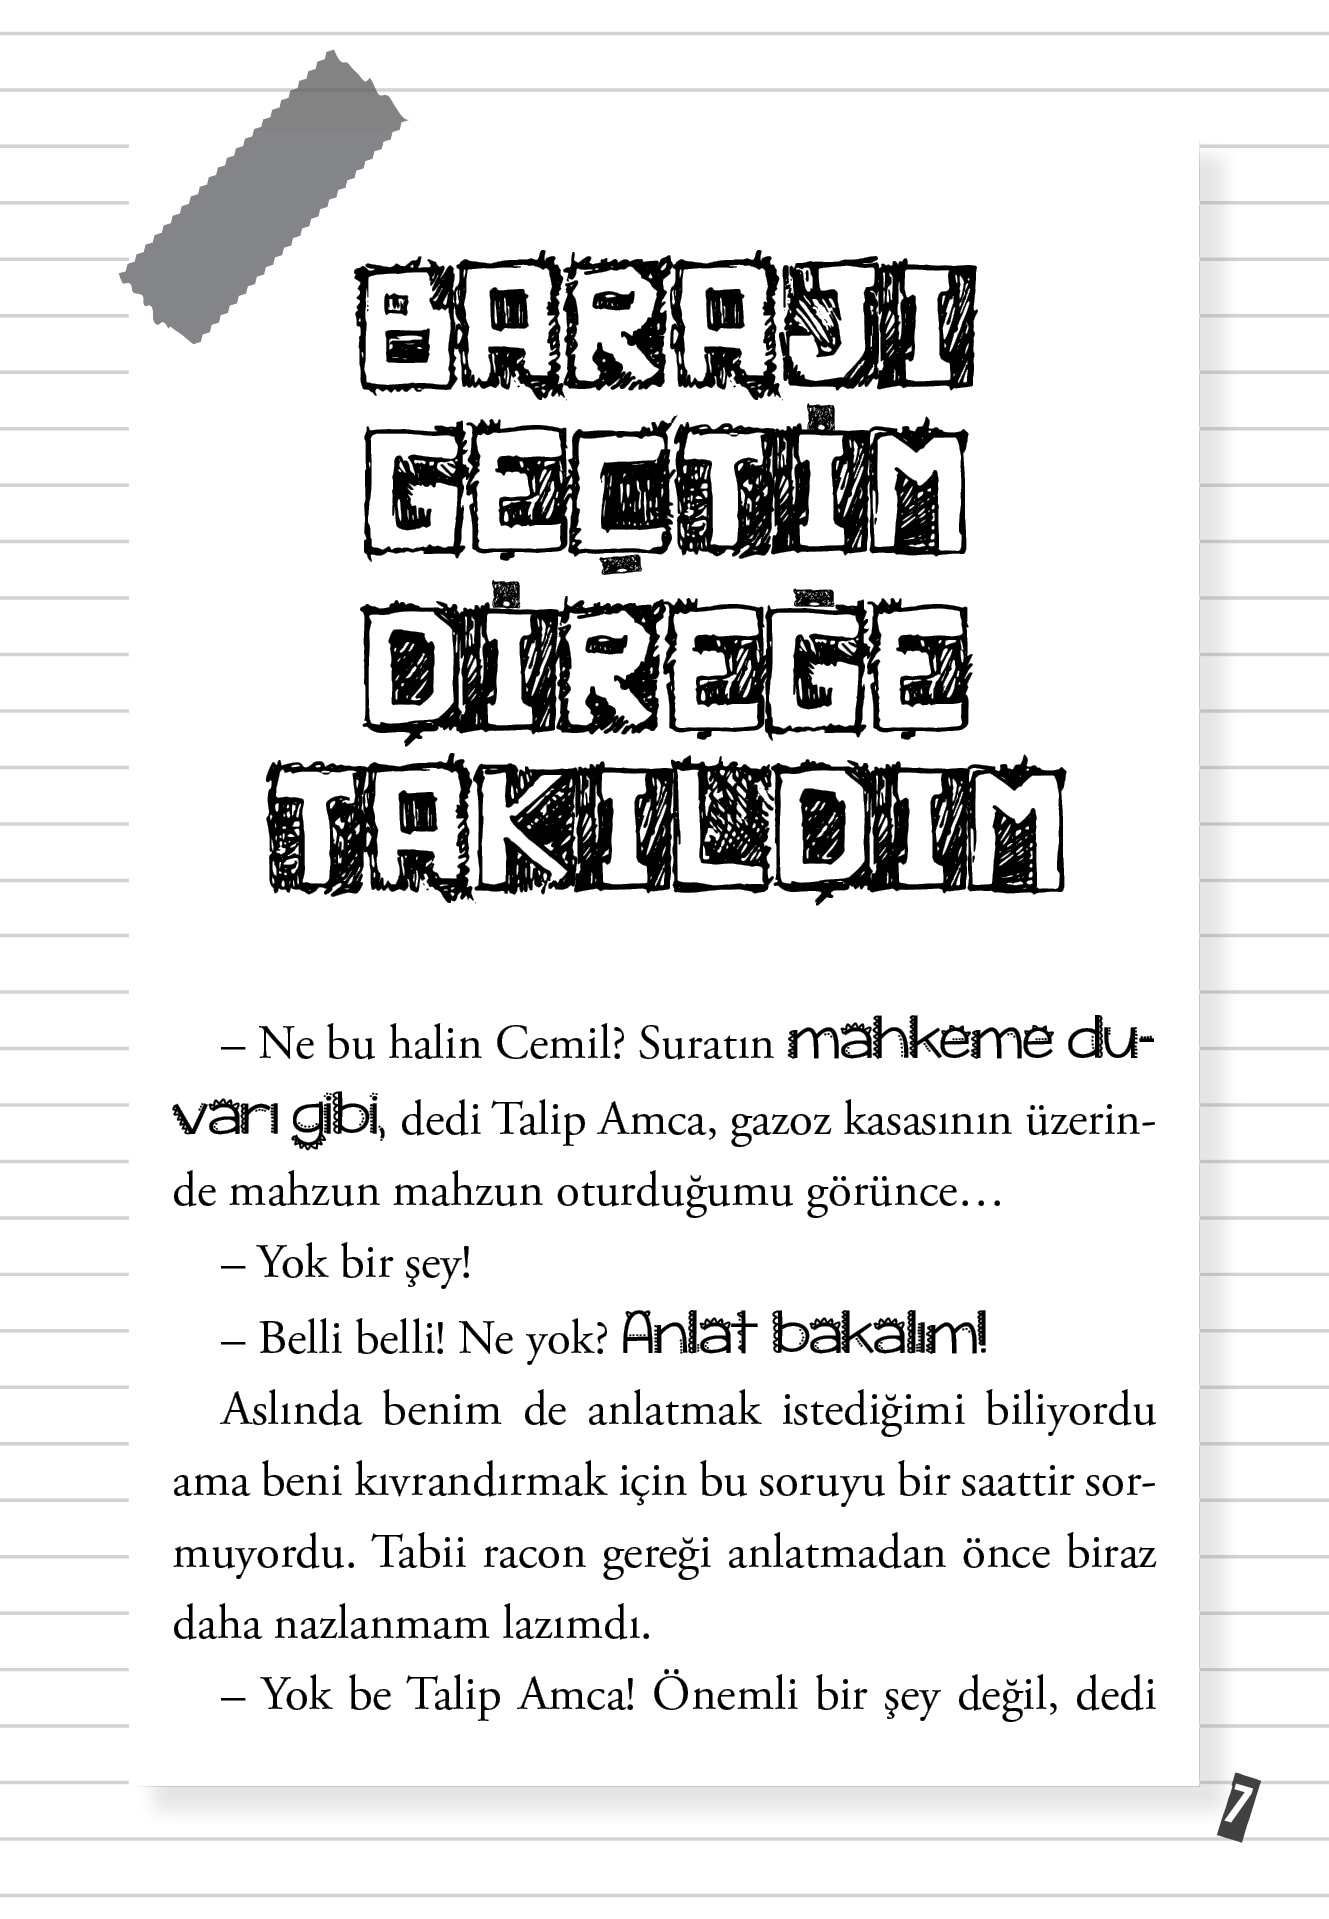 BARAJI
GEÇTİM
DİREĞE
TAKILDIM
– Ne bu halin Cemil? Suratın mahkeme du-
varı gibi, dedi Talip Amca, gazoz kasasının üzerin-
de mahzun mahzun oturduğumu görünce…
– Yok bir şey!
– Belli belli! Ne yok? Anlat bakalım!
Aslında benim de anlatmak istediğimi biliyordu
ama beni kıvrandırmak için bu soruyu bir saattir sor-
muyordu. Tabii racon gereği anlatmadan önce biraz
daha nazlanmam lazımdı.
– Yok be Talip Amca! Önemli bir şey değil, dedi
7